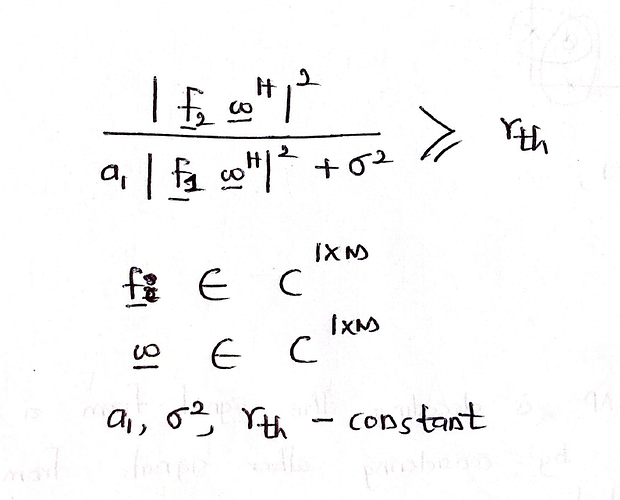 | f₂ ω^H |²
a₁ | f₁ ω^H |² + σ² ⩾ r_th
f_i ∈ C^{1×N}
ω ∈ C^{1×N}
a₁, σ², r_th - constant